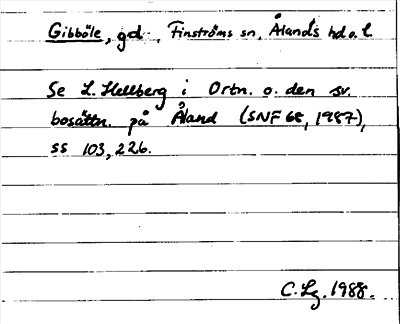 Gibböle, gd., Finströms sn, Ålands hd o. l.
Se L. Hellberg i Ortn. o. den sv.
bosättn. på Åland (SNF 68, 1987),
ss 103, 226.
C. Lg. 1988.